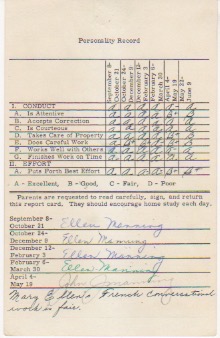 Personality Record
September 8-
October 21
October 24-
December 9
December 12-
February 3
February 6-
March 30
April 4-
May 19
May 22-
June 9
I. CONDUCT
A. Is Attentive
B. Accepts Correction
C. Is Courteous
D. Takes Care of Property
E. Does Careful Work
F. Works Well with Others
G. Finishes Work on Time
II. EFFORT
A. Puts Forth Best Effort
A - Excellent, B - Good, C - Fair, D - Poor
Parents are requested to read carefully, sign, and return
this report card. They should encourage home study each day.
September 8-
October 21 Ellen Manning
October 24-
December 9 Ellen Manning
December 12-
February 3 Ellen Manning
February 6-
March 30 Ellen Manning
April 4-
May 19 John Manning
Mary Ellen's French conversational
work is fair.